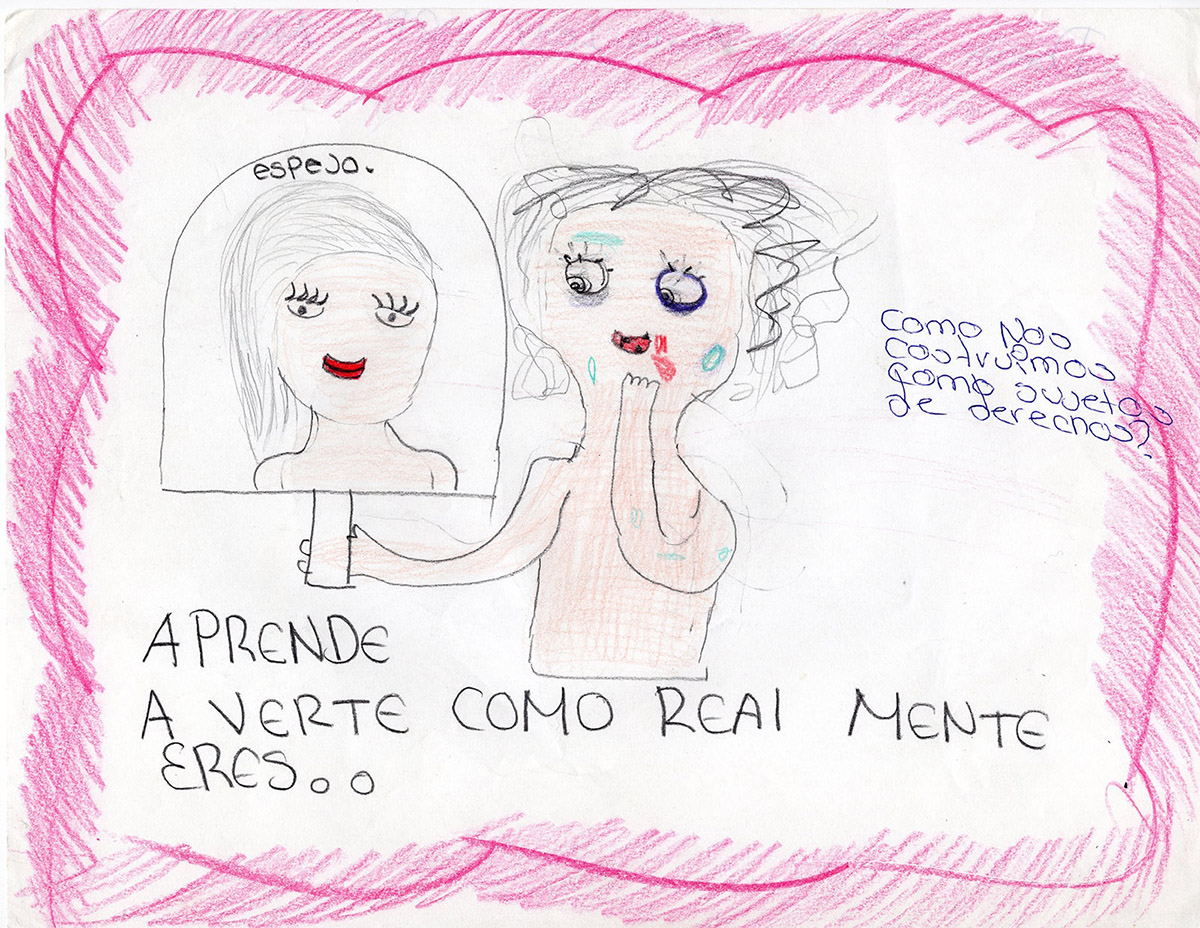 espejo.
Como Nos
costruimos
como sujetos
de derechos?
APRENDE
A VERTE COMO REAl MENTE
ERES..